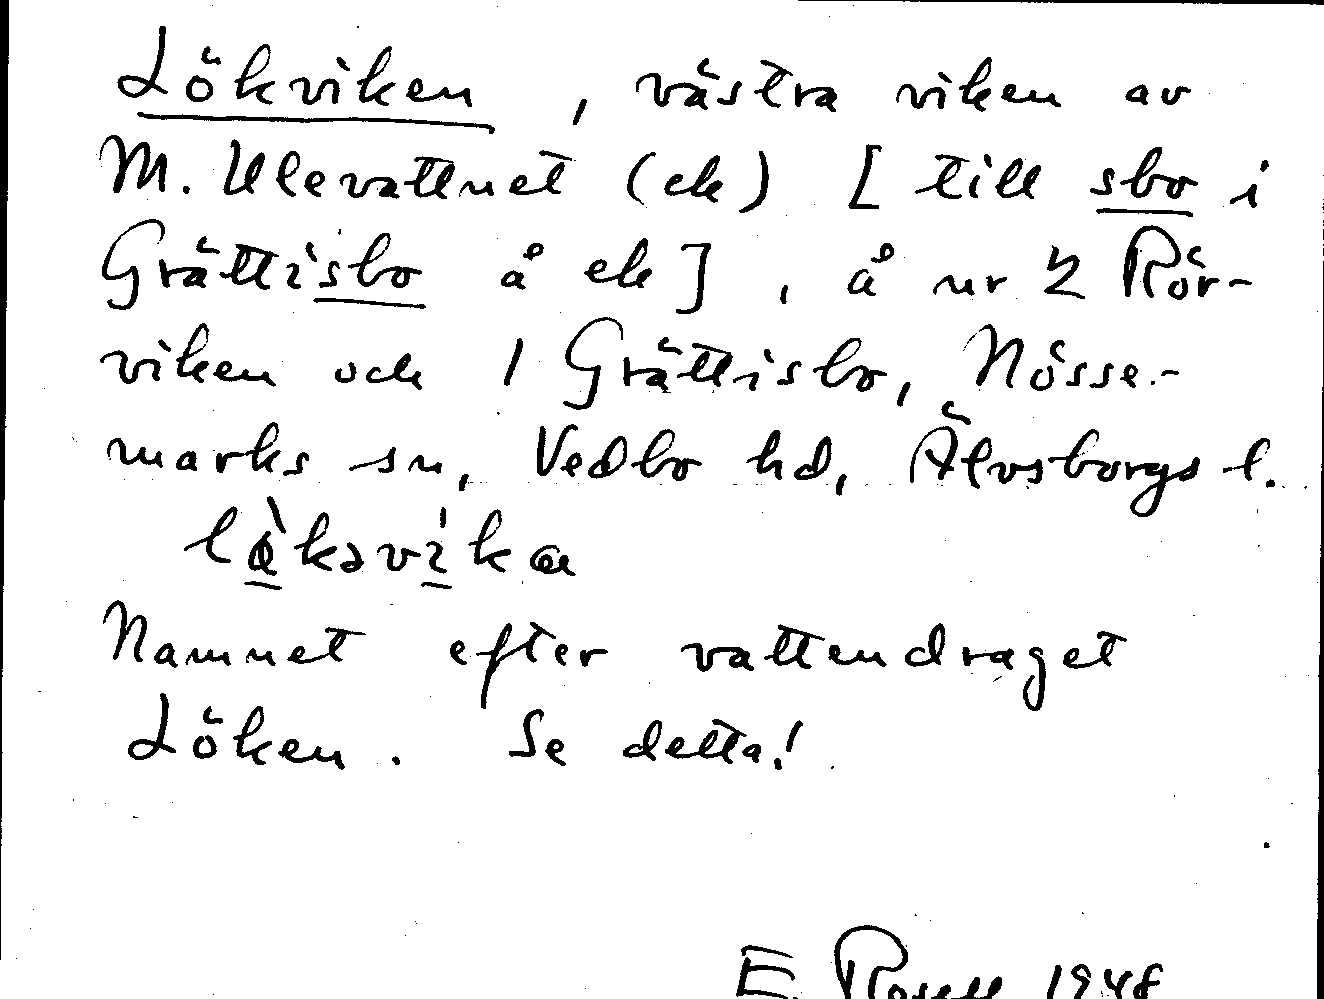 Lökviken, västra viken av
M. Ulevattnet (ek) [till sbo i
Grättisbo å ek], å ur 2 Rör-
viken och 1 Grättisbo, Nösse-
marks sn, Vedbo hd, Älvsborgs l.
Namnet efter vattendraget
Löken. Se detta!
E. Rosell 1948